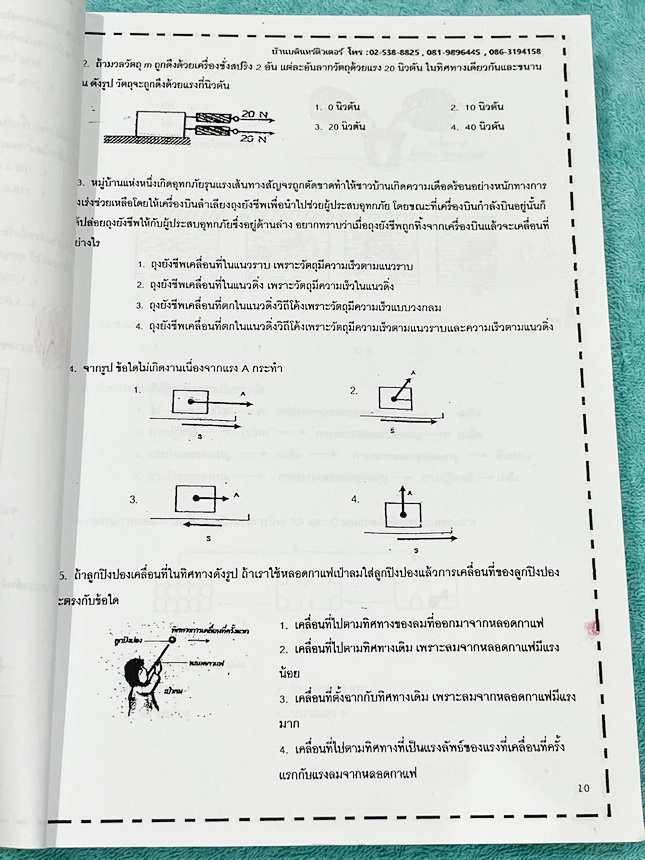 บ้านบดินทร์ติวเตอร์ โทร :02-538-8825 , 081-9896445 , 086-3194158
2. ถ้ามวลวัตถุ m ถูกดึงด้วยเครื่องชั่งสปริง 2 อัน แต่ละอันลากวัตถุด้วยแรง 20 นิวตัน ในทิศทางเดียวกันและขนาน
น ดังรูป วัตถุจะถูกดึงด้วยแรงกี่นิวตัน
1. 0 นิวตัน 2. 10 นิวตัน
3. 20 นิวตัน 4. 40 นิวตัน
20 N
20 N
3. หมู่บ้านแห่งหนึ่งเกิดอุทกภัยรุนแรงเส้นทางสัญจรถูกตัดขาดทำให้ชาวบ้านเกิดความเดือดร้อนอย่างหนักทางการ
งเร่งช่วยเหลือโดยให้เครื่องบินลำเลียงถุงยังชีพเพื่อนำไปช่วยผู้ประสบอุทกภัย โดยขณะที่เครื่องบินกำลังบินอยู่นั้นก็
ด้ปล่อยถุงยังชีพให้กับผู้ประสบอุทกภัยซึ่งอยู่ด้านล่าง อยากทราบว่าเมื่อถุงยังชีพถูกทิ้งจากเครื่องบินแล้วจะเคลื่อนที่
ย่างไร
1. ถุงยังชีพเคลื่อนที่ในแนวราบ เพราะวัตถุมีความเร็วตามแนวราบ
2. ถุงยังชีพเคลื่อนที่ในแนวดิ่ง เพราะวัตถุมีความเร็วในแนวดิ่ง
3. ถุงยังชีพเคลื่อนที่ตกในแนวดิ่งวิถีโค้งเพราะวัตถุมีความเร็วแบบวงกลม
4. ถุงยังชีพเคลื่อนที่ตกในแนวดิ่งวิถีโค้งเพราะวัตถุมีความเร็วตามแนวราบและความเร็วตามแนวดิ่ง
4. จากรูป ข้อใดไม่เกิดงานเนื่องจากแรง A กระทำ
1. A 2. A
S S
3. A 4. A
S S
5. ถ้าลูกปิงปองเคลื่อนที่ในทิศทางดังรูป ถ้าเราใช้หลอดกาแฟเป่าลมใส่ลูกปิงปองแล้วการเคลื่อนที่ของลูกปิงปอง
ะตรงกับข้อใด
ทิศทางการเคลื่อนที่ครั้งแรก
ลูกปิงปอง
หลอดกาแฟ
เป่าลม
1. เคลื่อนที่ไปตามทิศทางของลมที่ออกมาจากหลอดกาแฟ
2. เคลื่อนที่ไปตามทิศทางเดิม เพราะลมจากหลอดกาแฟมีแรง
น้อย
3. เคลื่อนที่ตั้งฉากกับทิศทางเดิม เพราะลมจากหลอดกาแฟมีแรง
มาก
4. เคลื่อนที่ไปตามทิศทางที่เป็นแรงลัพธ์ของแรงที่เคลื่อนที่ครั้ง
แรกกับแรงลมจากหลอดกาแฟ
10